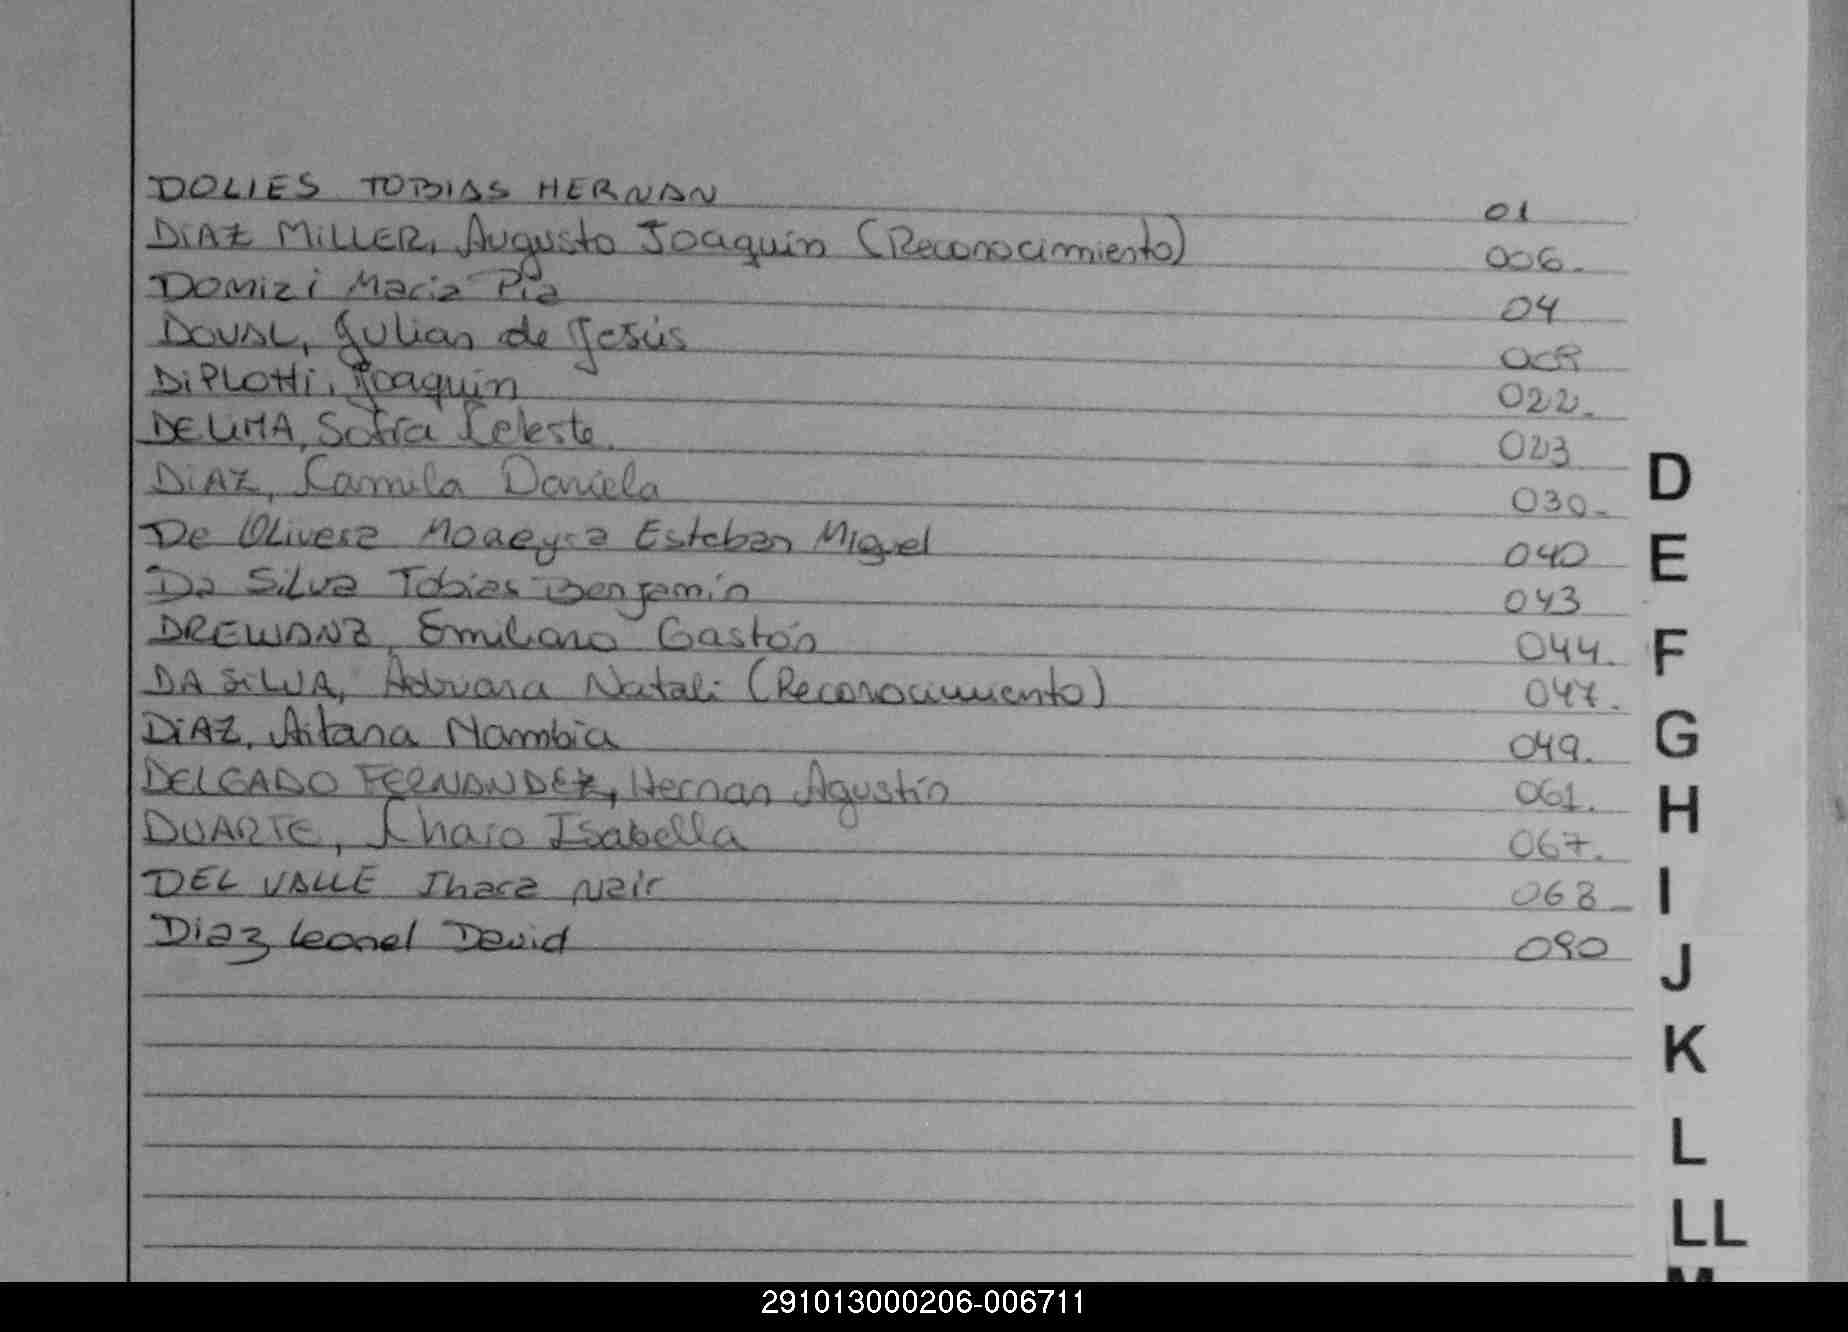 DOLIES TOBIAS HERNAN 01
DIAZ MILLER, Augusto Joaquin (Reconocimiento) 006.
Domizi Maria Pia 04
DOVAL, Julian de Jesús
DiPLOtti, Joaquin 022.
DELIMA, Sofia Celeste. 023
DIAZ, Camila Daniela 030.
De Olivera Esteban Miguel 040
Da Silva Tobias Benjamin 043
DREWANZ, Emiliano Gastón 044.
DA SILVA, Natali (Reconocimiento) 047.
DIAZ, Aitana Nambia 049.
DELGADO FERNANDEZ, Hernan Agustín 061.
DUARTE, Isabella 067.
DEL VALLE Ihara Nair 068
Diaz Leonel David
D
E
F
G
H
I
J
K
L
LL
M
291013000206-006711